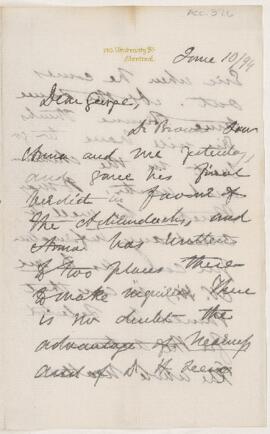 ACC. 376
University St.
Montreal.
June 10/94
Dear George,
Dr Brown saw
Anna and me yesterday,
and gave his final
verdict in favour of
the Adirondacks, and
Anna has written
to two places there
to make inquiries. There
is no doubt the
advantage of nearness
and of Dr H. being